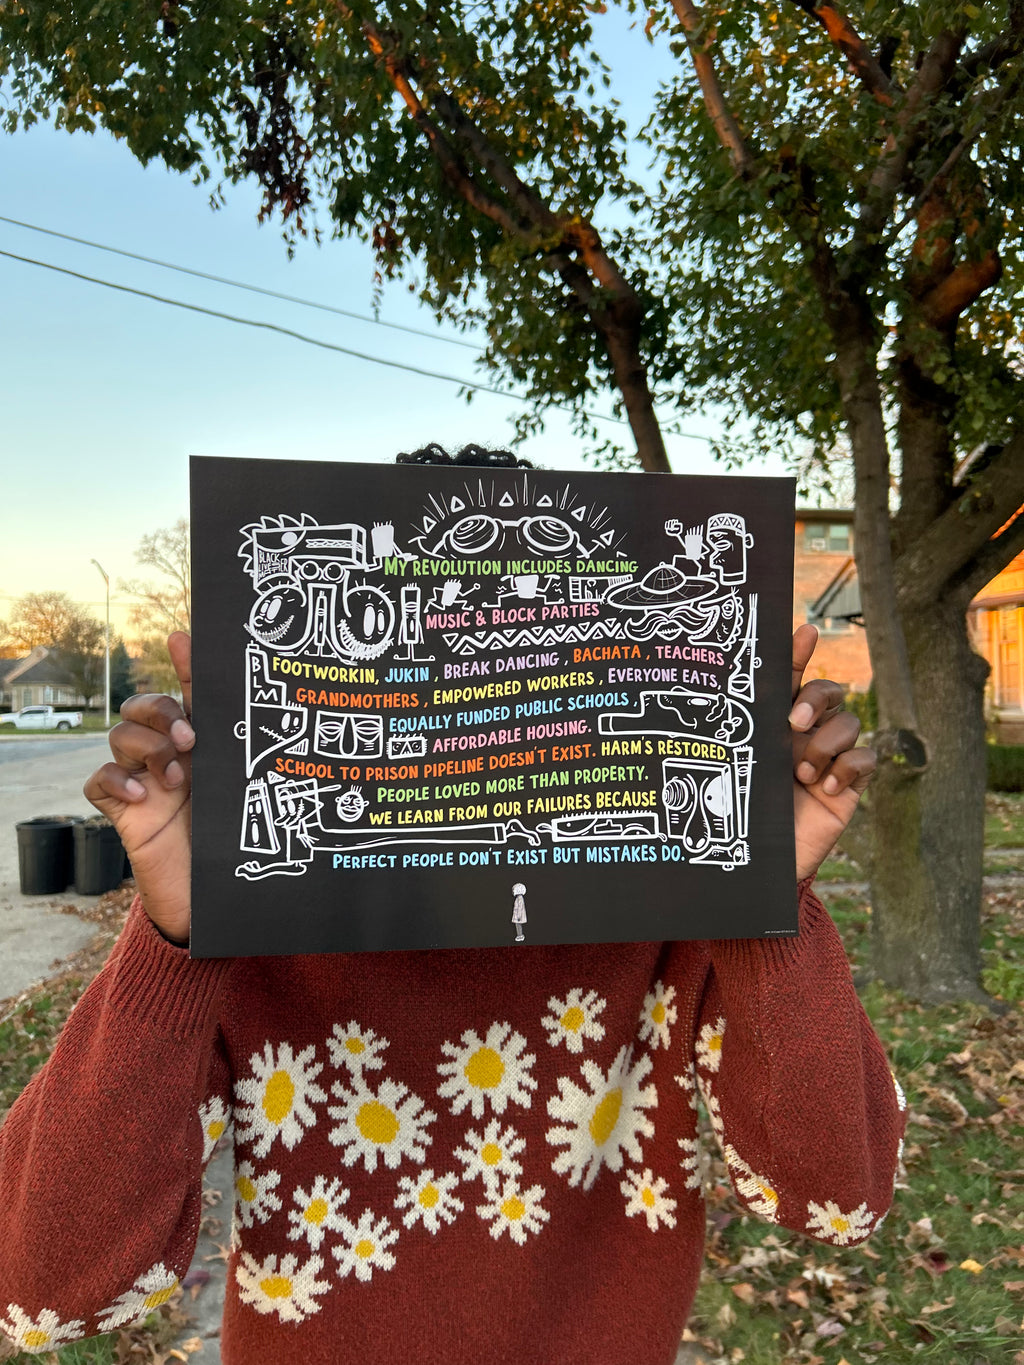 BLACK
LIVES
MATTER
MY REVOLUTION INCLUDES DANCING
MUSIC & BLOCK PARTIES
BLM
FOOTWORKIN, JUKIN, BREAK DANCING, BACHATA, TEACHERS
GRANDMOTHERS, EMPOWERED WORKERS, EVERYONE EATS,
EQUALLY FUNDED PUBLIC SCHOOLS,
AFFORDABLE HOUSING.
SCHOOL TO PRISON PIPELINE DOESN'T EXIST. HARM'S RESTORED.
PEOPLE LOVED MORE THAN PROPERTY.
WE LEARN FROM OUR FAILURES BECAUSE
PERFECT PEOPLE DON'T EXIST BUT MISTAKES DO.